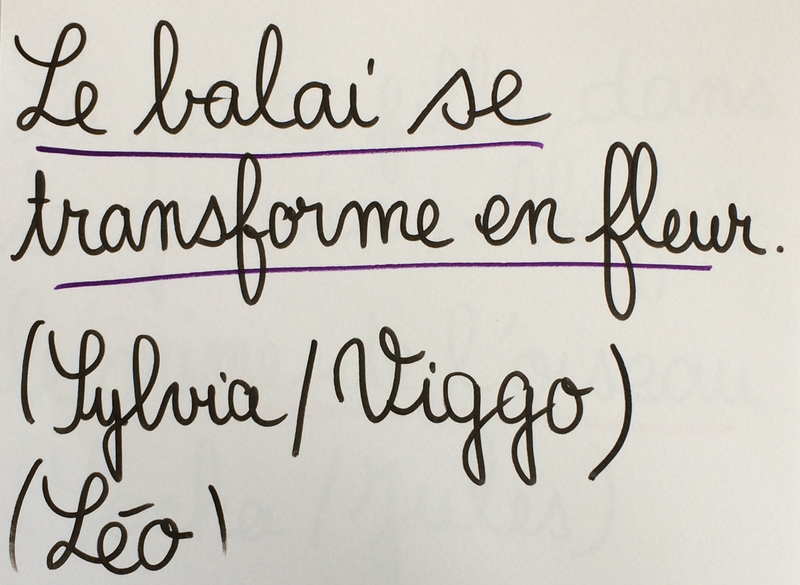 Le balai se
transforme en fleur.
(Sylvia/Viggo)
(Léo)